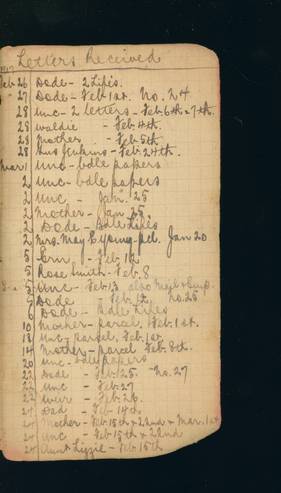 Letters Received
1917
Feb 26 Dode - 2 Lifes.
" 27 Dode - Feb 1st. No. 24
28 Unc - 2 letters - Feb 6th + 7th.
28 Waldie - Feb 4th.
28 Mother - Feb 5th
28 Jenkins - Feb 24th.
Mar 1 Unc - bdle papers
2 Unc - bdle papers
2 Unc - Jan 25
2 Mother - Jan 25
2 Dode - Bdle Lifes
2 Mrs. May E Young - pcl. Jan 20
5 - Feb 12
5 Rose Smith - Feb. 8
5 Unc - Feb 13 also
5 Dode Feb 12, No. 25
6 Dode - Bdle Lifes
10 Mother - parcel, Feb. 1st.
13 Unc - parcel, Feb. 1st.
14 Mother - parcel Feb. 8th.
20 Unc - bdle papers
22 Dode - Feb 25. No. 27
22 Unc - Feb 27
22 - Feb. 26.
24 Dad - Feb 14th
24 Mother - Feb 15th + 22nd + Mar. 1st
24 Unc - Feb 15th + 22nd
24 Aunt Lizzie - Feb 15th